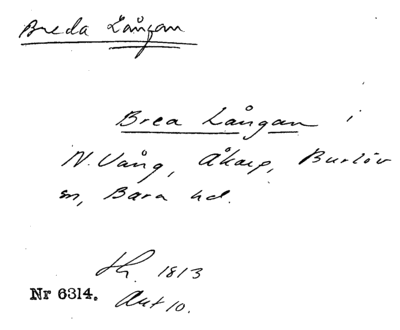 Breda Långan
Brea Långan i
N. Vång, Åkarp, Burlöv
sn, Bara hd.
Sk. 1813
Nr 6314. Akt 10.